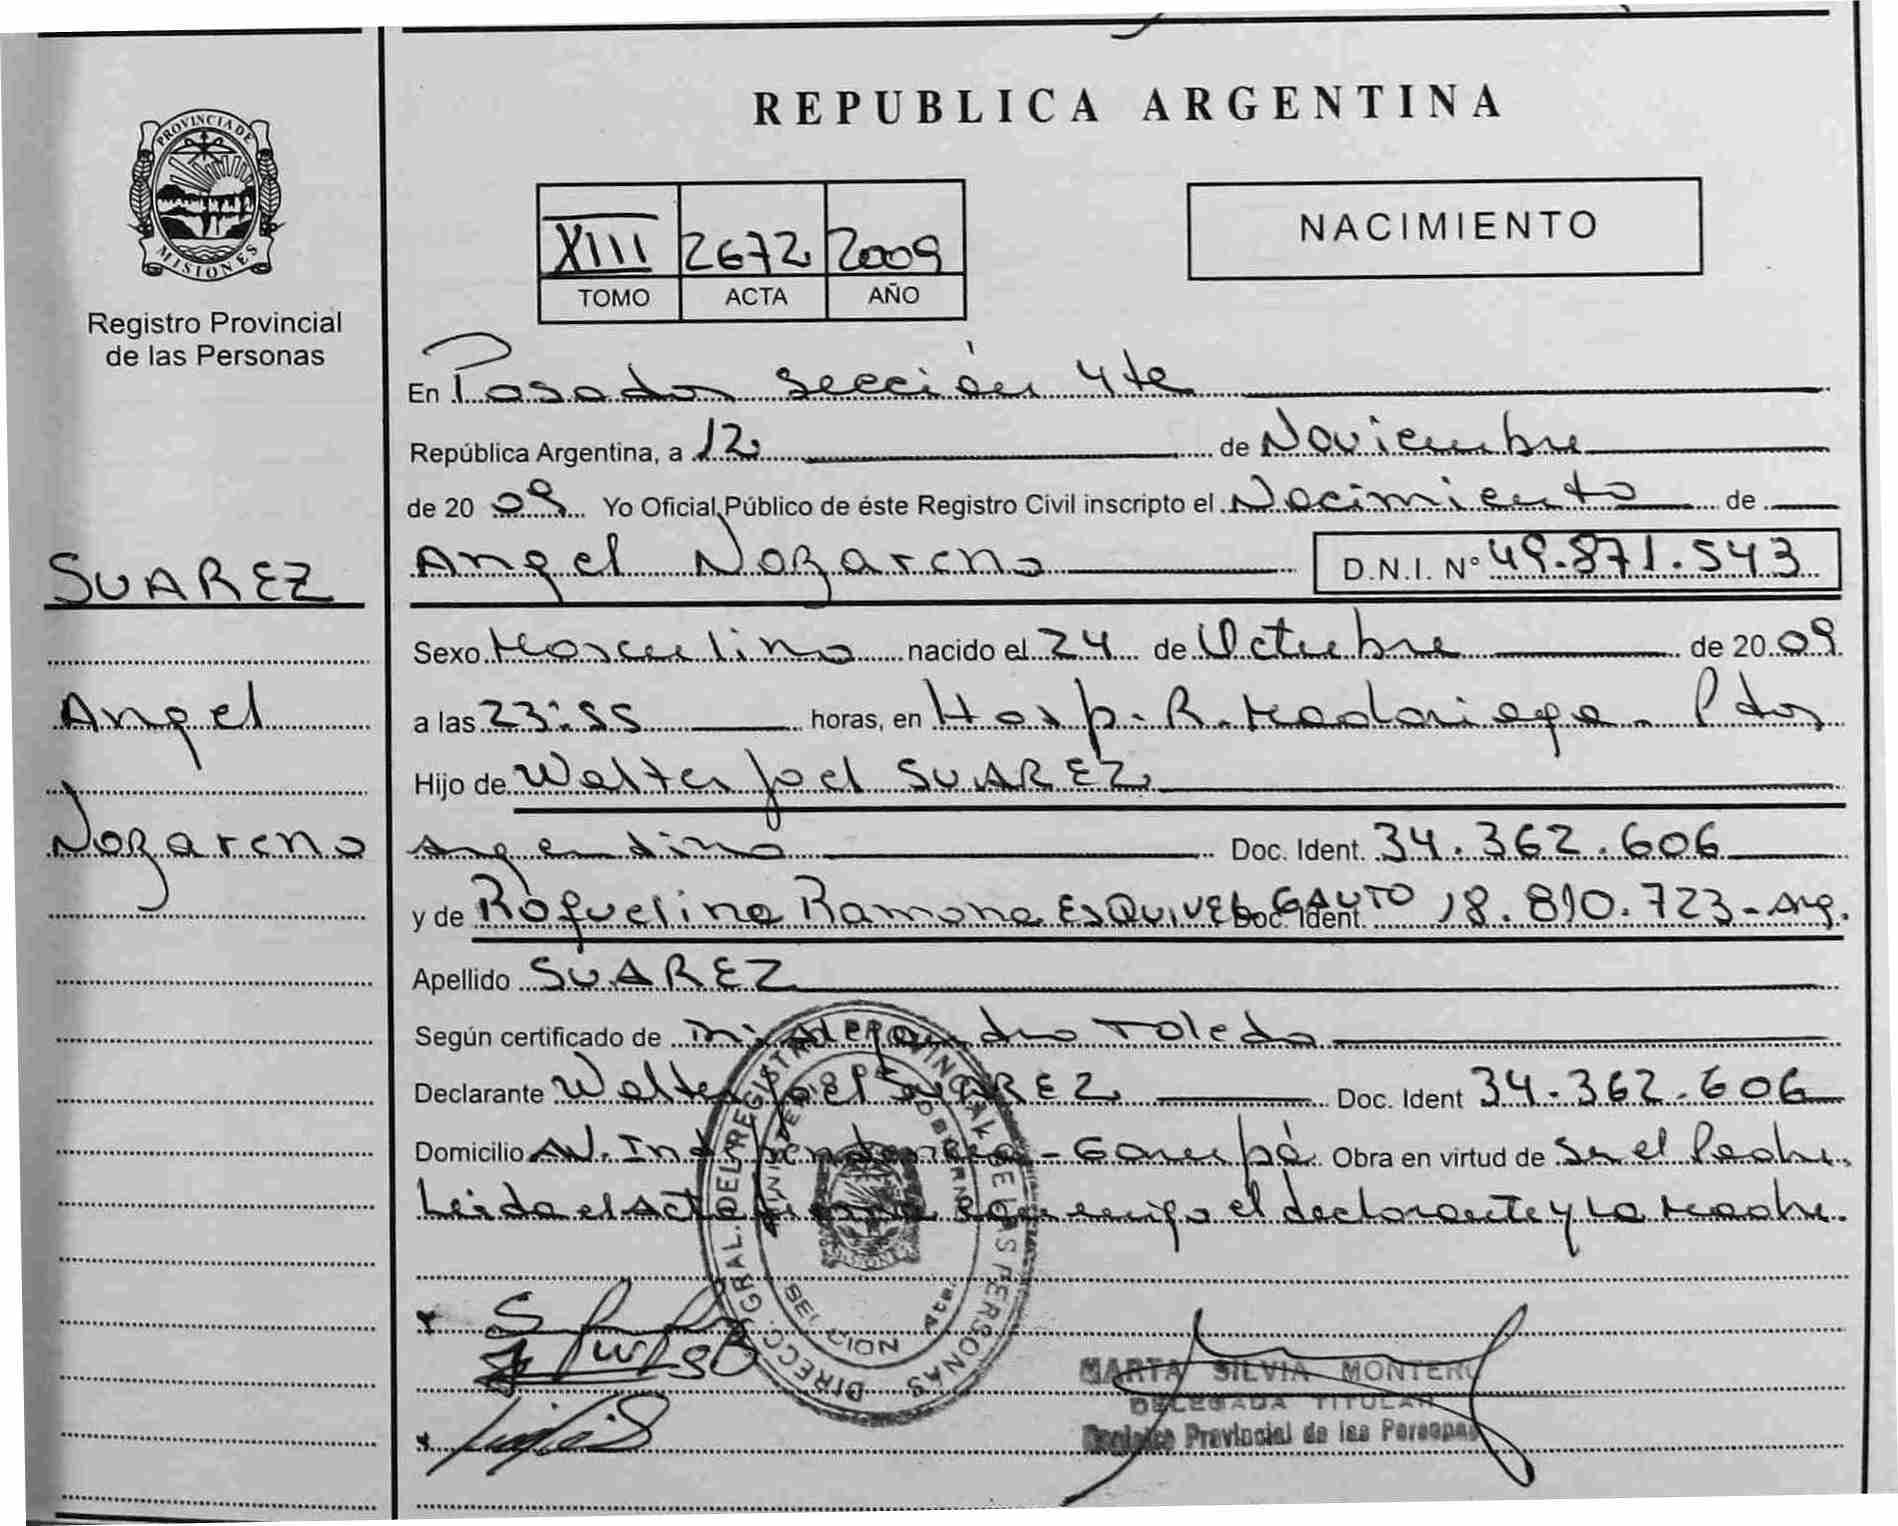 REPUBLICA ARGENTINA
PROVINCIA DE
MISIONES
Registro Provincial
de las Personas
XIII 2672 2009
TOMO ACTA AÑO
NACIMIENTO
En Posadas Sección 4ta
República Argentina, a 12 de Noviembre
de 2009 Yo Oficial Público de éste Registro Civil inscripto el Nacimiento de
SUAREZ
Angel Nazareno D.N.I. Nº 49.871.543
Sexo Masculino nacido el 24 de Octubre de 2009
Angel
a las 23:55 horas, en Hosp. R. Madariaga - Pdas
Hijo de Walter Joel SUAREZ
Nazareno
Argentino Doc. Ident. 34.362.606
y de Roquelina Ramona ESQUIVEL GAUTO Doc. Ident. 18.810.723 - Arg.
Apellido SUAREZ
Según certificado de Dr. Alejandro Toledo
Declarante Walter Joel SUAREZ Doc. Ident 34.362.606
Domicilio Av. Independencia - Garupá Obra en virtud de Ser el Padre.
Leida el Acta firma conmigo el declarante y La Madre.
DIRECC. GRAL. DEL REGISTRO PROVINCIAL DE LAS PERSONAS
MINISTERIO DE GOBIERNO
SECCION 4ta.
MARTA SILVIA MONTERO
DELEGADA TITULAR
Registro Provincial de las Personas